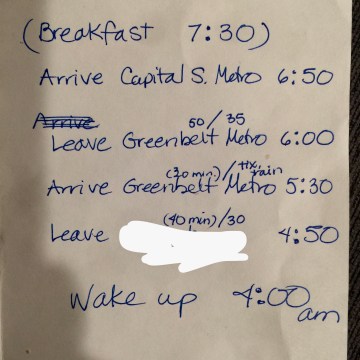 (Breakfast 7:30)
Arrive Capital S. Metro 6:50
Arrive
50/35
Leave Greenbelt Metro 6:00
(30 min)/tix, train
Arrive Greenbelt Metro 5:30
(40 min)/30
Leave 4:50
Wake up 4:00 am